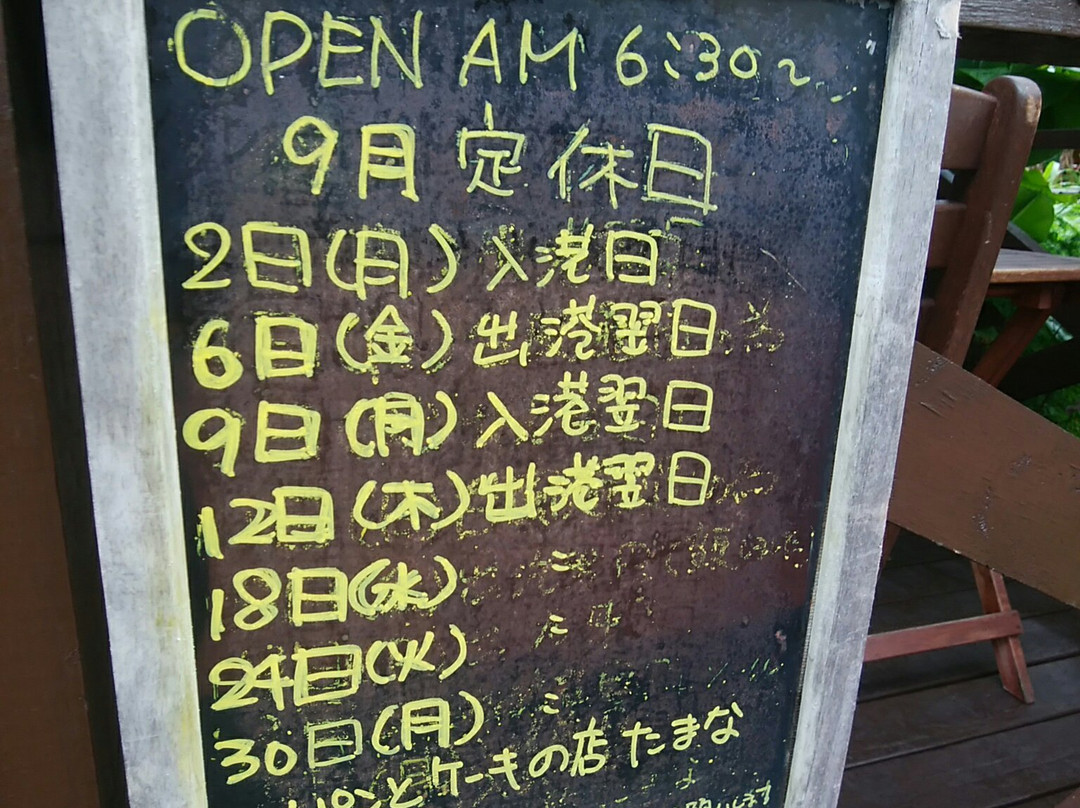 OPEN AM 6:30～
9月 定休日
2日(月) 入港日
6日(金) 出港翌日
9日(月) 入港翌日
12日(木) 出港翌日
18日(水) 〃
24日(火) 〃
30日(月) 〃
パンとケーキの店 たまな
します